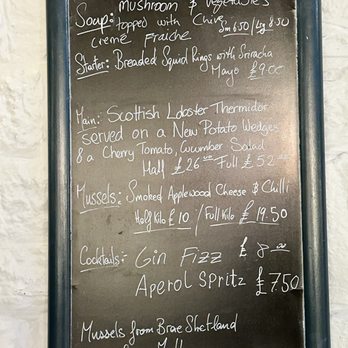 Soup: Mushroom & Vegetables
topped with Chive Sm 6.50 / Lg 8.50
Crème Fraiche
Starter: Breaded Squid Rings with Sriracha
Mayo £9.00
Main: Scottish Lobster Thermidor
served on a New Potato Wedges
& a Cherry Tomato, Cucumber Salad
Half £26.00 Full £52.00
Mussels: Smoked Applewood Cheese & Chilli
Half Kilo £10 / Full Kilo £19.50
Cocktails: Gin Fizz £8.00
Aperol Spritz £7.50
Mussels from Brae Shetland